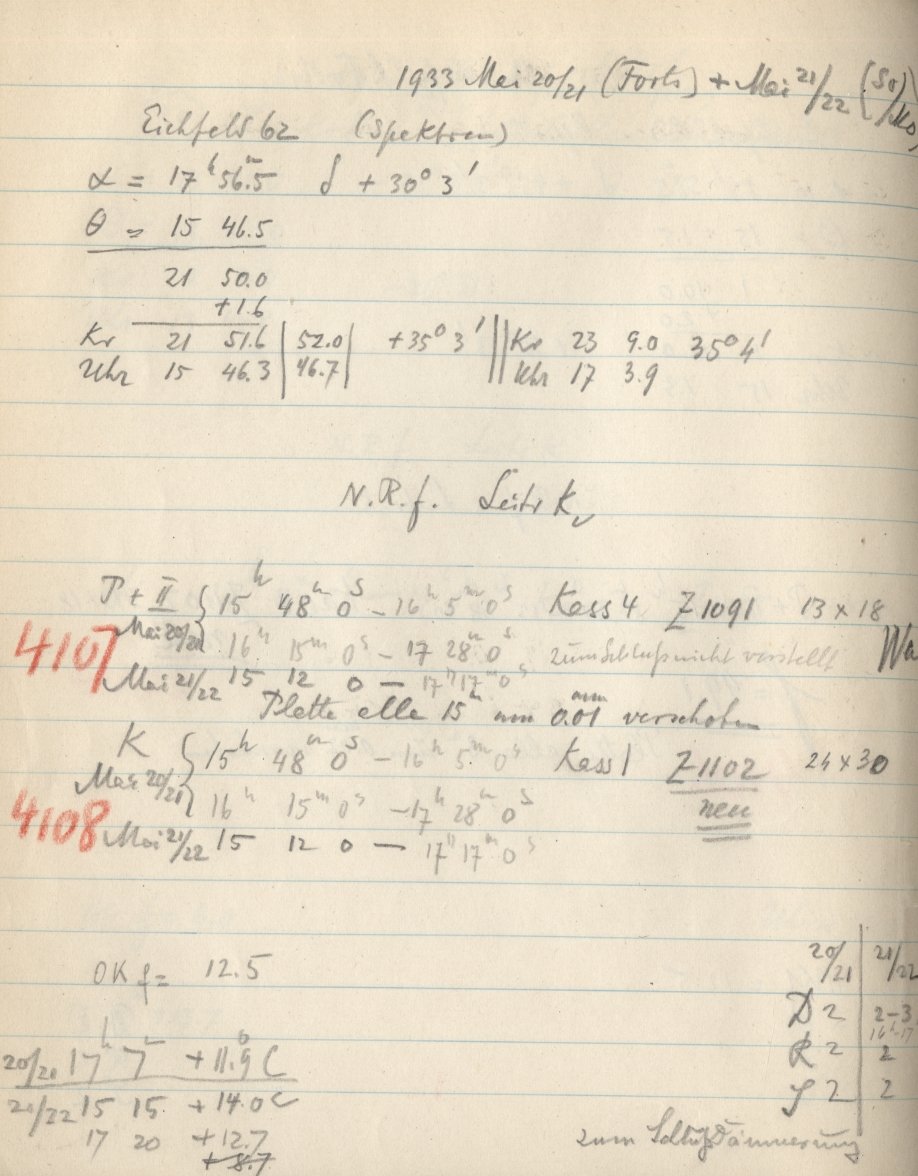 1933 Mai 20/21 (Forts) + Mai 21/22 (So/Mo)
Eichfeld 62 (Spektren)
α = 17h 56.5m δ + 30° 3'
θ = 15 46.5
21 50.0
+1.6
Kr 21 51.6 | 52.0 | +35° 3' || Kr 23 9.0 35° 4'
Uhr 15 46.3 | 46.7 | || Uhr 17 3.9
N.R.f. Leitr K
P + II { 15h 48m 0s – 16h 5m 0s Kass 4 Z 1091 13 × 18
Mai 20/21 16h 15m 0s – 17 28m 0s zum Schluß nicht verstellt
4107 Mai 21/22 15 12 0 – 17h 17m 0s
Platte alle 15m um 0.01 mm verschoben
K { 15h 48m 0s – 16h 5m 0s Kass 1 Z 1102 24 × 30
Mai 20/21 16h 15m 0s – 17h 28m 0s neu
4108 Mai 21/22 15 12 0 – 17h 17m 0s
OK f = 12.5
20/21 | 21/22
D 2 | 2–3
16h–17
R 2 | 2
S 2 | 2
20/21 17h 7m + 11.9° C
21/22 15 15 + 14.0 C
17 20 + 12.7
+ 8.7
zum Schluß Dämmerung